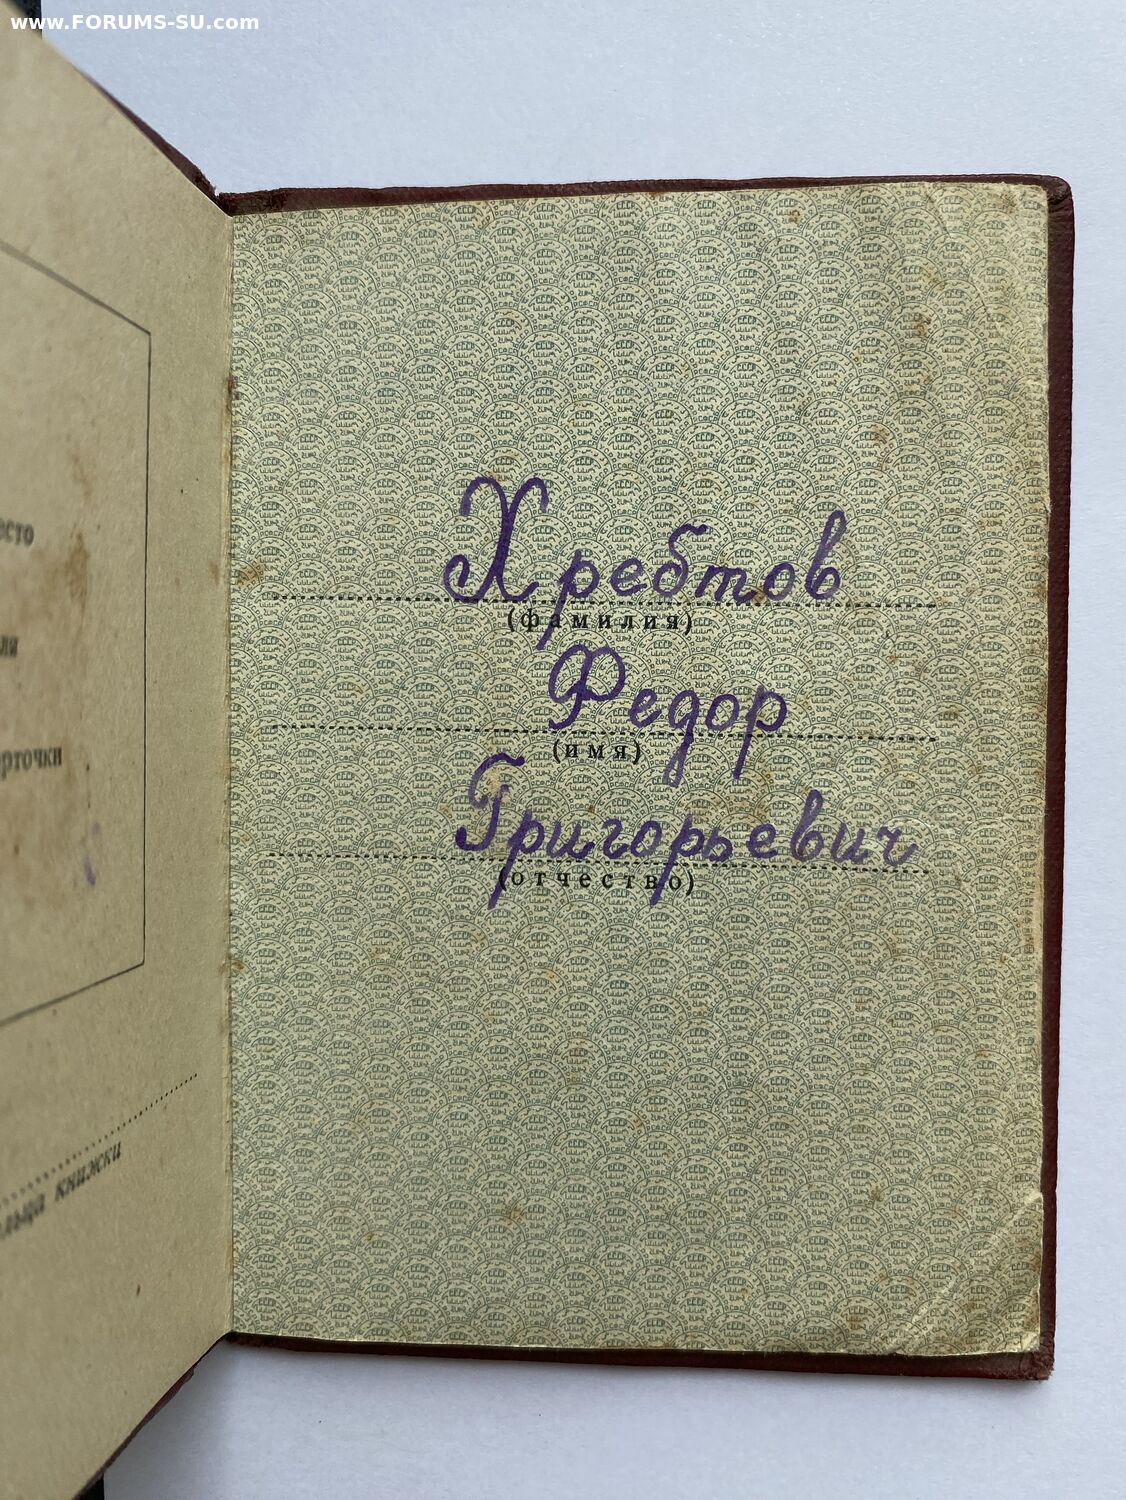 www.FORUMS-SU.com
есто
рточки
книжки
Хребтов
(фамилия)
Федор
(имя)
Григорьевич
(отчество)